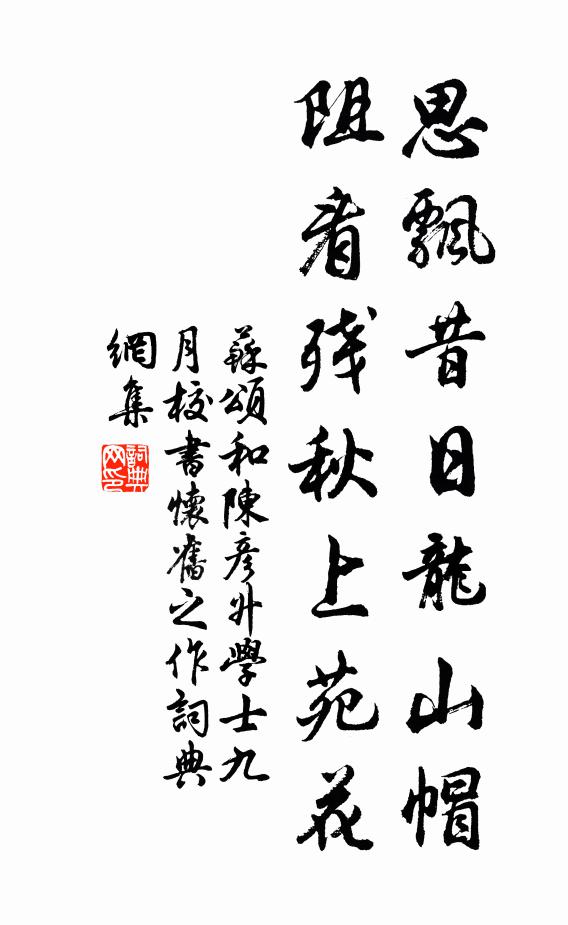 思飄昔日龍山帽
阻看残秋上苑花
蘇頌和陳彦升學士九
月校書懷舊之作詞典
網集
詞典网印